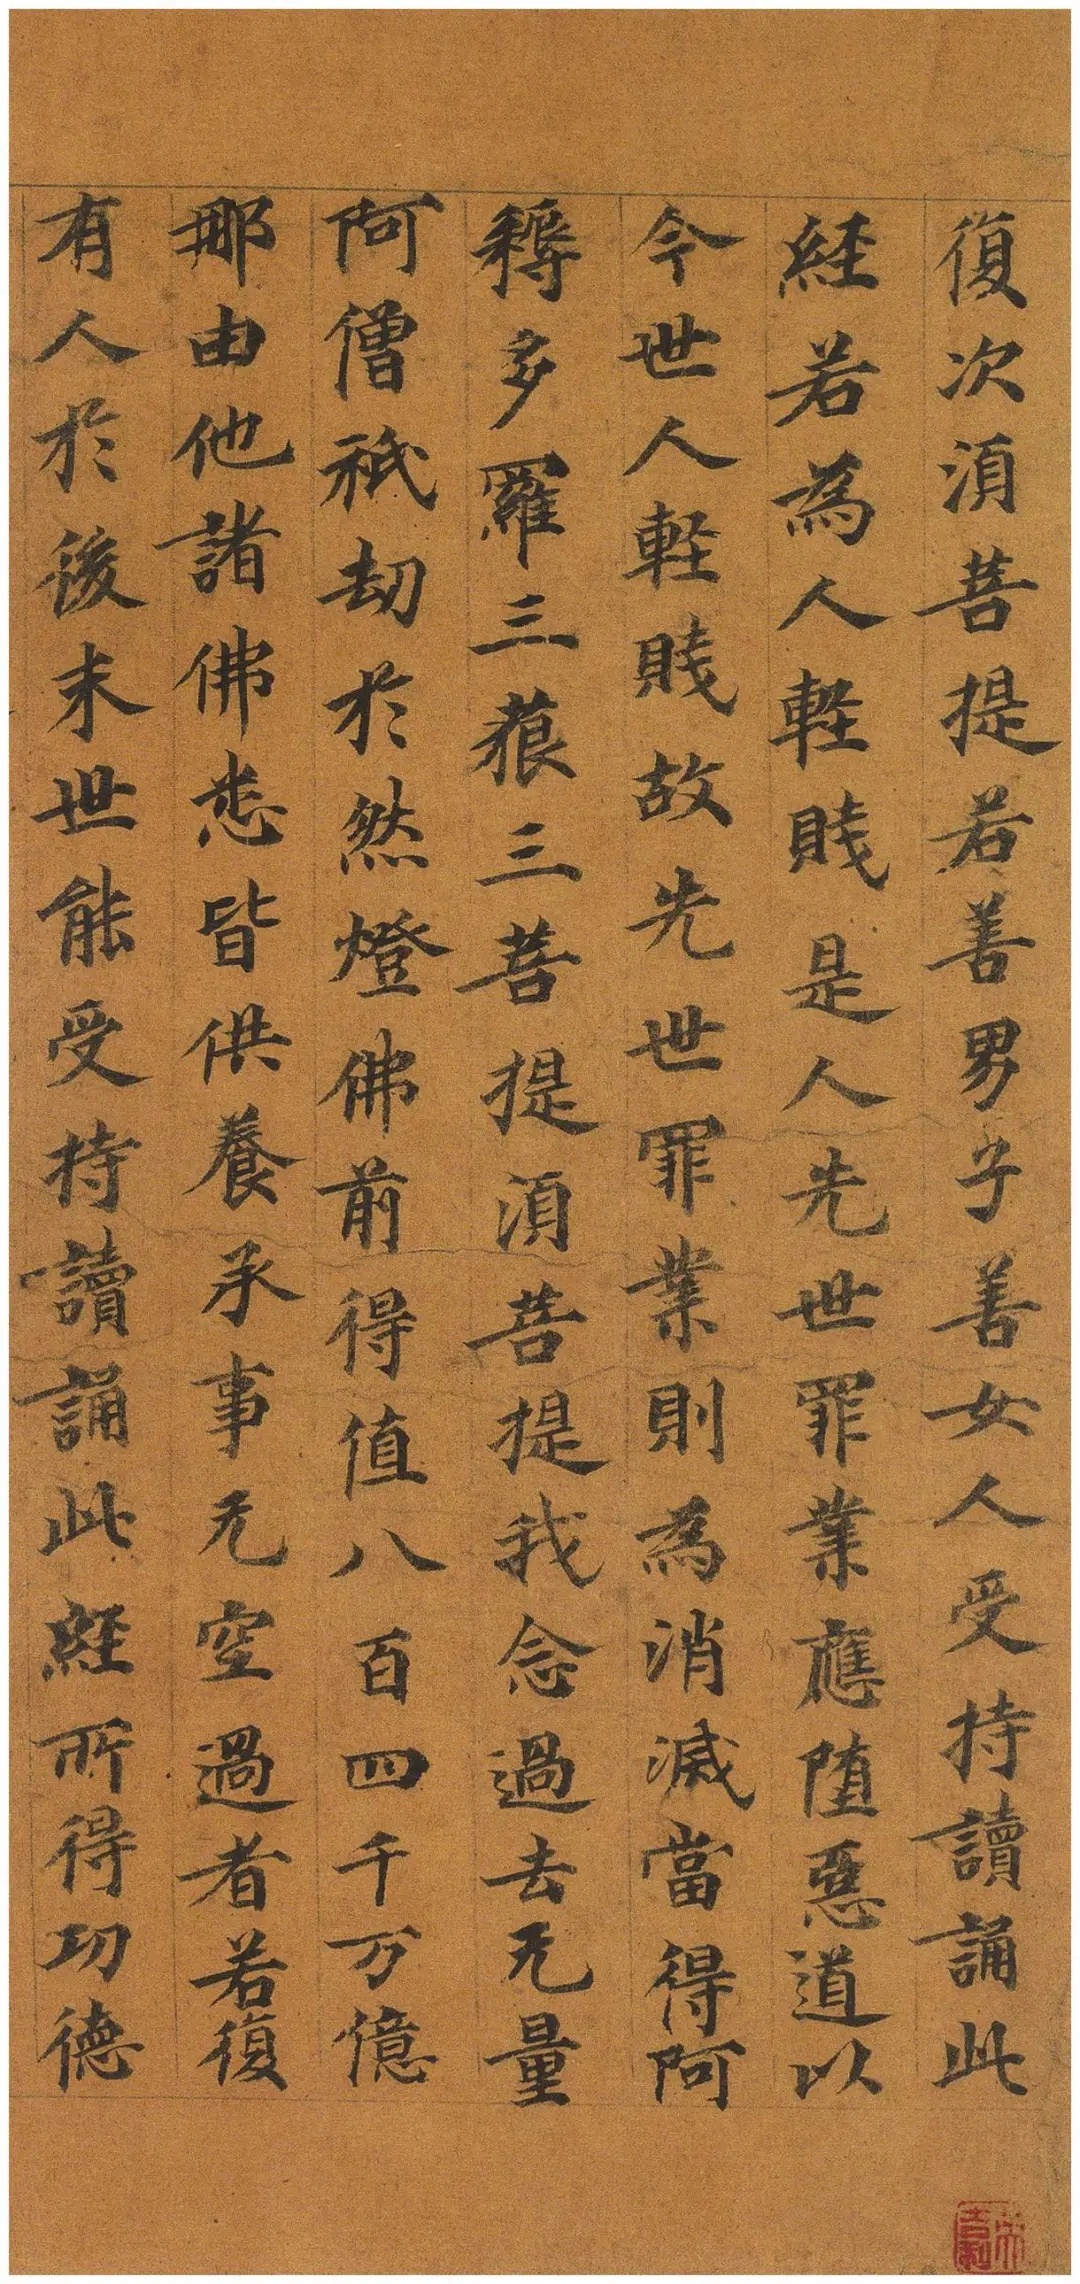 復次須菩提若善男子善女人受持讀誦此
經若為人輕賤是人先世罪業應墮惡道以
今世人輕賤故先世罪業則為消滅當得阿
耨多羅三藐三菩提須菩提我念過去无量
阿僧祇劫於然燈佛前得值八百四千万億
那由他諸佛悉皆供養承事无空過者若復
有人於後末世能受持讀誦此經所得功德